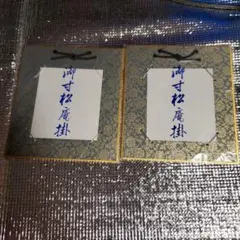 御寸松庵掛
御寸松庵掛